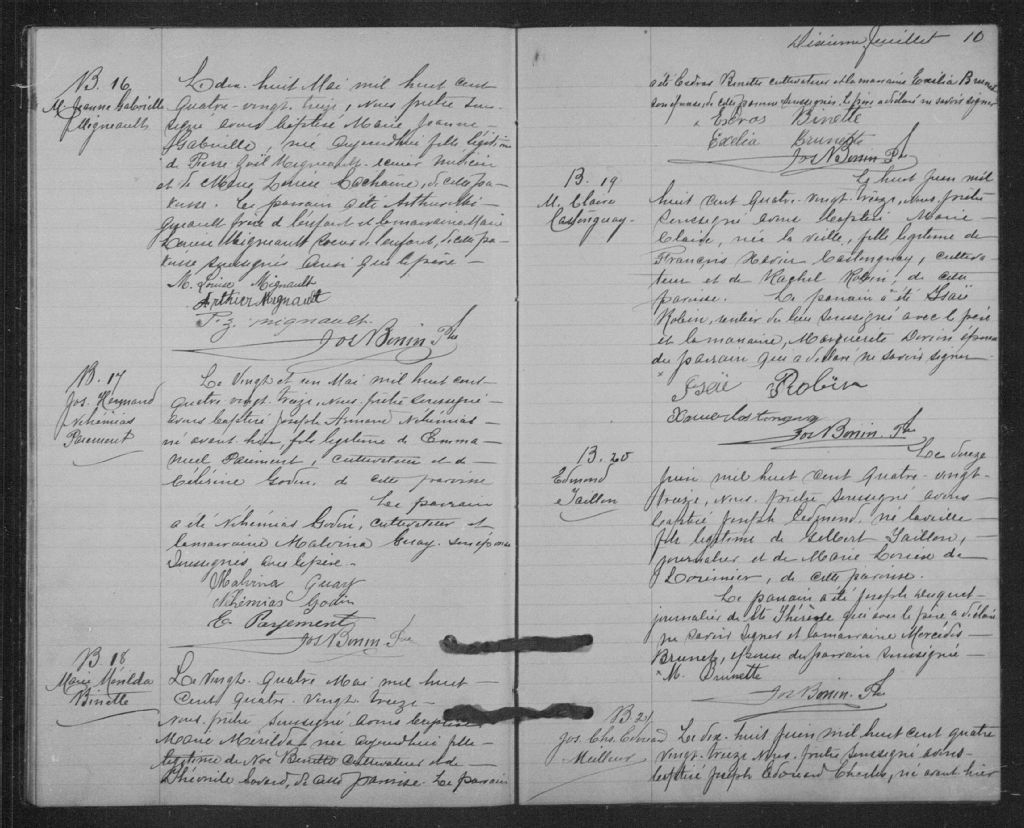 B. 16
M. Jeanne Gabrielle
Migneault
Le dix huit Mai mil huit cent
quatre-vingt-treize, Nous prêtre sous-
signé avons baptisé Marie Jeanne
Gabrielle, née aujourd'hui fille légitime
de Pierre Zoël Migneault, écuier médecin
et de Marie Louise Lachaine, de cette pa-
roisse. Le parrain a été Arthur Mi-
gneault frère de l'enfant et la marraine Marie
Louise Migneault soeur de l'enfant, de cette pa-
roisse soussignés ainsi que le père -
M. Louise Mignault
Arthur Mignault
P. Z. Mignault
Jos N Bonin Ptre
B. 17
Jos. Armand
Néhémias
Paiement
Le Vingt et un Mai mil huit cent
quatre vingt treize, Nous prêtre soussigné
avons baptisé Joseph Armand Néhémias -
né avant hier, fils légitime d'Emma-
nuel Paiment, cultivateur et de -
Célérine Godin, de cette paroisse
Le parrain
a été Néhémias Godin, cultivateur et
la marraine Malvina Guay, son épouse
soussignés avec le père -
Malvina Guay
Néhémias Godin
E. Payement
Jos N Bonin Ptre
B. 18
Marie Mérilda
Binette
Le Vingt-quatre Mai mil huit -
cent quatre-vingt treize -
Nous, prêtre soussigné avons baptisé
Marie Mérilda, née aujourd'hui fille -
légitime de Noé Binette cultivateur et de
de cette paroisse. Le parrain
Dixième feuillet 10
a été Esdras Binette cultivateur et la marraine Exilia Brunet
son épouse, de cette paroisse soussignés. Le père a déclaré ne savoir signer
Esdras Binette
Exilia Brunette
Jos N Bonin Ptre
B. 19
M. Claire
Castonguay
Le huit Juin mil
huit cent quatre-vingt-treize, Nous, prêtre
soussigné avons baptisé Marie -
Claire, née la veille, fille légitime de
François Xavier Castonguay, cultiva-
teur et de Rachel Robin, de cette
paroisse. Le parrain a été Isaïe
Robin, rentier du lieu soussigné avec le père
et la marraine, Marguerite épouse
du parrain qui a déclaré ne savoir signer
Isaïe Robin
Xavier Castonguay
Jos N Bonin Ptre
B. 20
Edmond
Taillon
Le douze
Juin mil huit cent quatre-vingt-
treize, Nous, prêtre soussigné avons -
baptisé Joseph Edmond, né la veille -
fils légitime de Gilbert Taillon, -
journalier et de Marie Louise de
Lorimier, de cette paroisse.
Le parrain a été Joseph
journalier de Ste Thérèse qui avec le père a déclaré
ne savoir signer et la marraine Mercédès -
Brunet, épouse du parrain soussignée -
M. Brunette
Jos N Bonin. Ptre
B 21
Jos. Chs. Edouard
Meilleur
Le dix-huit Juin mil huit cent quatre
vingt-treize Nous, prêtre soussigné avons -
baptisé Joseph Edouard Charles, né avant hier